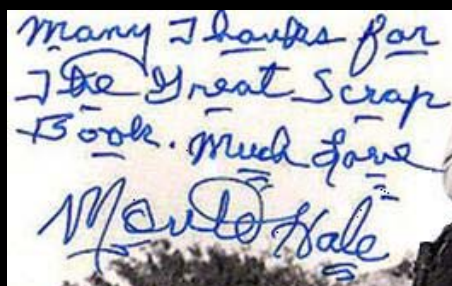 Many Thanks for
The Great Scrap
Book. Much Love
Monte Hale